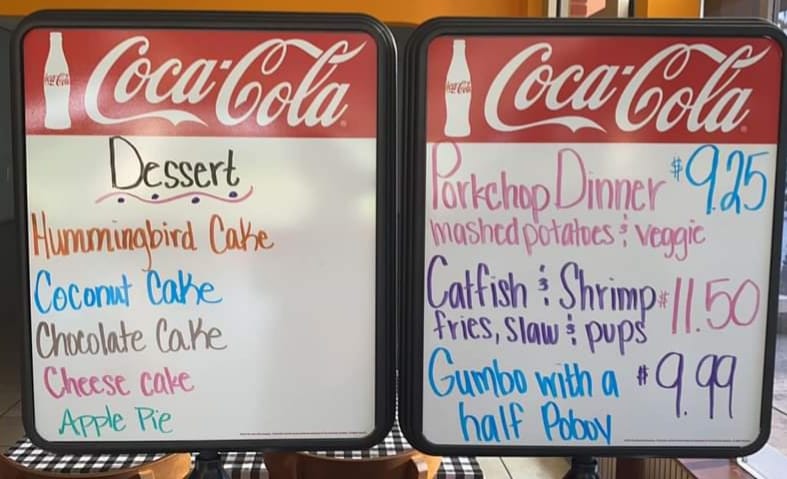 Coca-Cola
Dessert
Hummingbird Cake
Coconut Cake
Chocolate Cake
Cheese cake
Apple Pie
Coca-Cola
Porkchop Dinner $9.25
mashed potatoes & veggie
Catfish & Shrimp $11.50
fries, slaw & pups
Gumbo with a $9.99
half Poboy